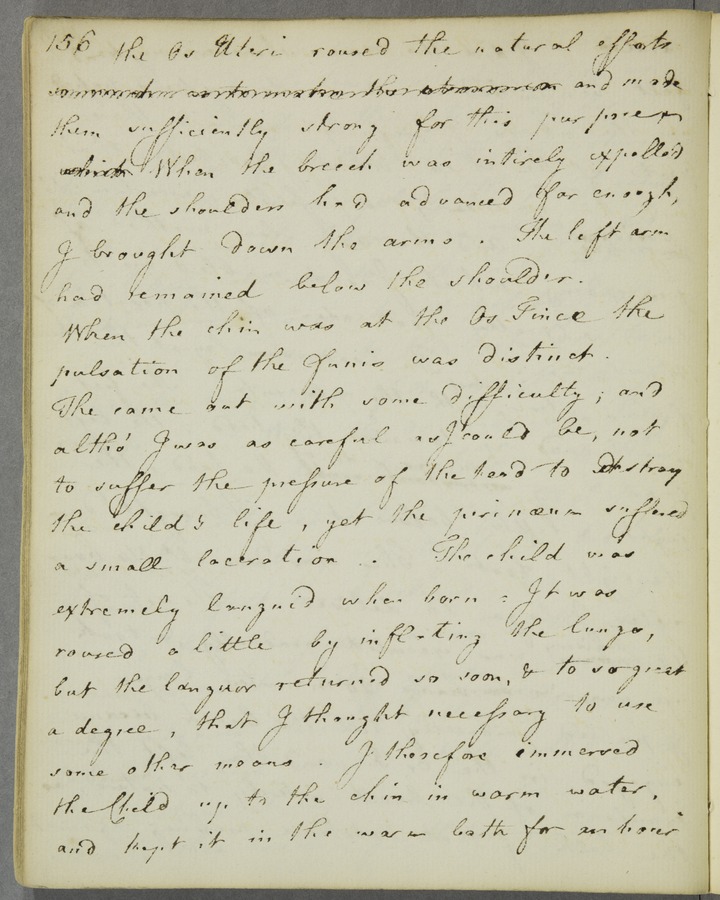 156 the Os Uteri roused the natural efforts
and made
them sufficiently strong for this purpose
which When the breech was intirely expelled
and the shoulders had advanced far enough,
I brought down the arms. The left arm
had remained below the shoulder.
When the chin was at the Os Tincæ the
pulsation of the funis was distinct.
The came out with some difficulty; and
altho' I was as careful as I could be, not
to suffer the pressure of the head to destroy
the child's life, yet the perinæum suffered
a small laceration. The child was
extremely languid when born: It was
roused a little by inflating the lungs,
but the languor returned so soon, & to so great
a degree, that I thought necessary to use
some other means. I therefore immersed
the Child up to the chin in warm water,
and kept it in the warm bath for an hour